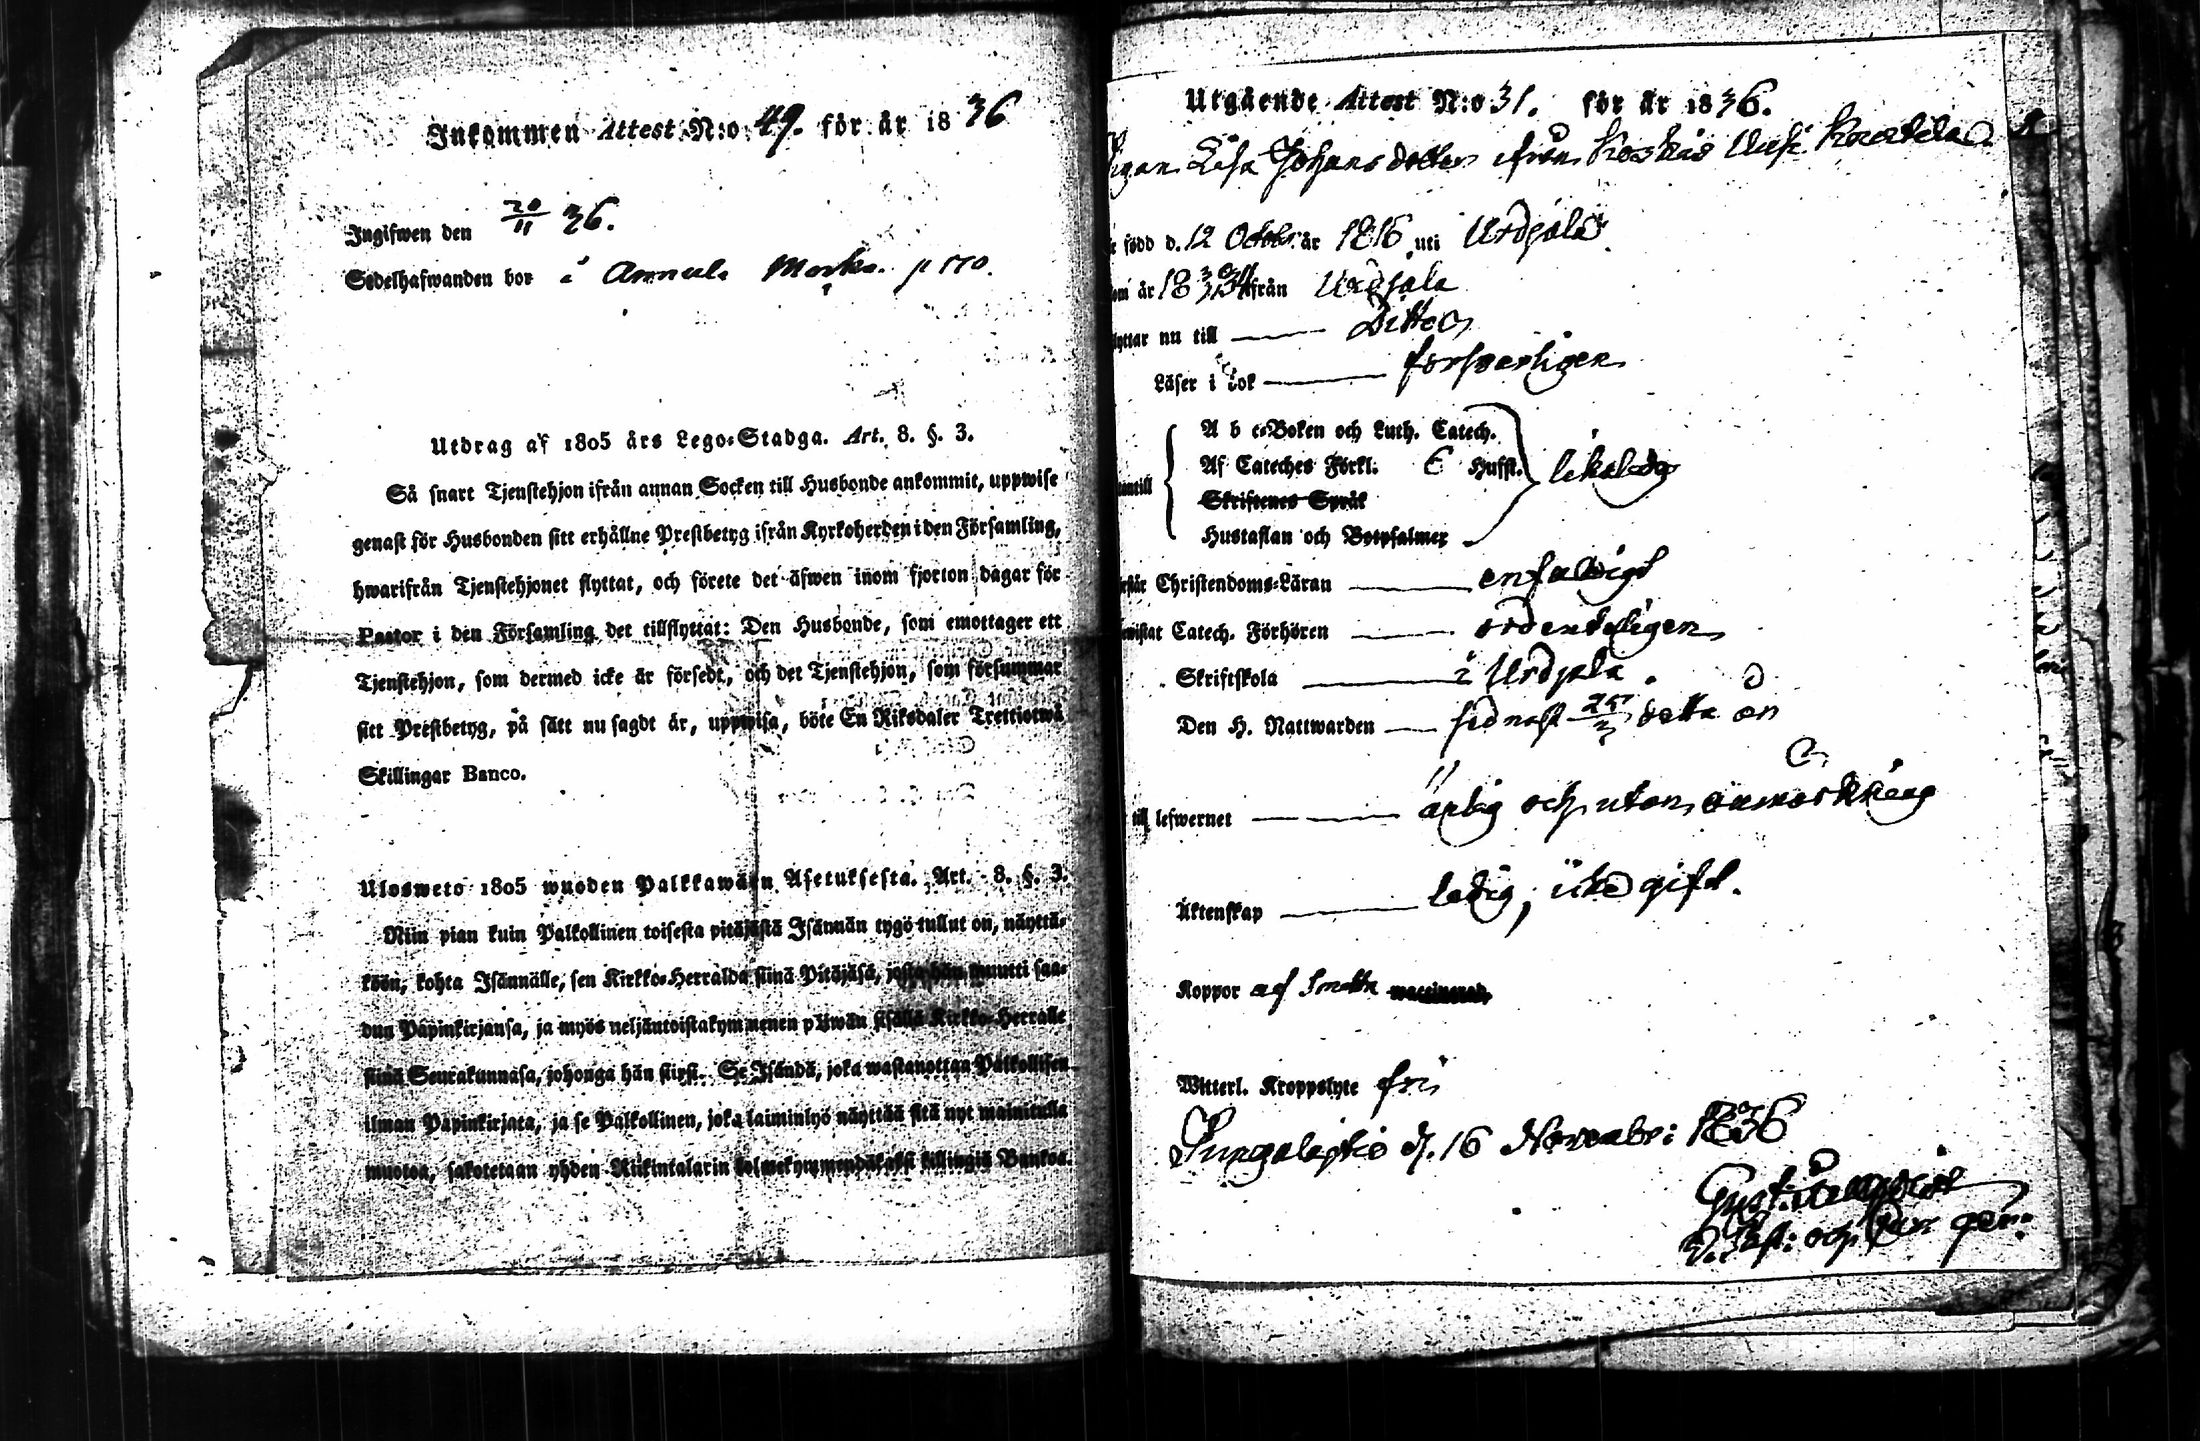 Inkommen Attest N:o 49. för år 1836
Ingifwen den 20/11 36.
Sedelhafwanden bor i Annula p 170.
Utdrag af 1805 års Lego-Stadga. Art. 8. §. 3.
Så snart Tjenstehjon ifrån annan Socken till Husbonde ankommit, uppwise
genast för Husbonden sitt erhållne Prestbetyg ifrån Kyrkoherden i den Församling,
hwarifrån Tjenstehjonet flyttat, och förete det äfwen inom fjorton dagar för
Pastor i den Församling det tillflyttat: Den Husbonde, som emottager ett
Tjenstehjon, som dermed icke är försedt, och det Tjenstehjon, som försummar
sitt Prestbetyg, på sätt nu sagdt är, uppwisa, böte En Riksdaler Trettiotwå
Skillingar Banco.
Ulosweto 1805 wuoden Palkkawäen Asetuksesta. Art. 8. §. 3.
Niin pian kuin Palkollinen toisesta pitäjästä Isännän tygö tullut on, näyttä-
köön, kohta Isännälle, sen Kirkko-Herralda siinä Pitäjäsä, josta hän muutti saa-
dun Papinkirjansa, ja myös neljäntoistakymmenen päiwän sisällä Kirkko-Herralle
siinä Seurakunnasa, johonga hän siirst. Se Isändä, joka wastanottaa Palkollisen
ilman Papinkirjata, ja se Palkollinen, joka laiminlyö näyttää sitä nyt mainitulla
muotoa, sakotetaan yhden Riikintalarin kolmekymmendäkaksi killingiä Bankoa.
Utgående Attest N:o 31. för år 1836.
Lisa Johansdotter ifrån Koskis
född d. 12 Octob. år 1816 uti Urdjala
år 18 från Urdjala
nu till Ditto
Läser i bok försvarligen
A b c-Boken och Luth. Catech.
Af Cateches Förkl. 6 Hufst.
Skriftenes Språk
Hustaflan och Botpsalmer
likaledes
Christendoms-Läran enfaldigt
Catech. Förhören ordenteligen
Skriftskola i Urdjala.
Den H. Nattwarden sednast detta år
till lefwernet ärlig och utan anmärkning
Äktenskap ledig, icke gift.
Koppor af Smitta waccinerad
Witterl. Kroppslyte fri
d. 16 Novembr: 1836
Gust.